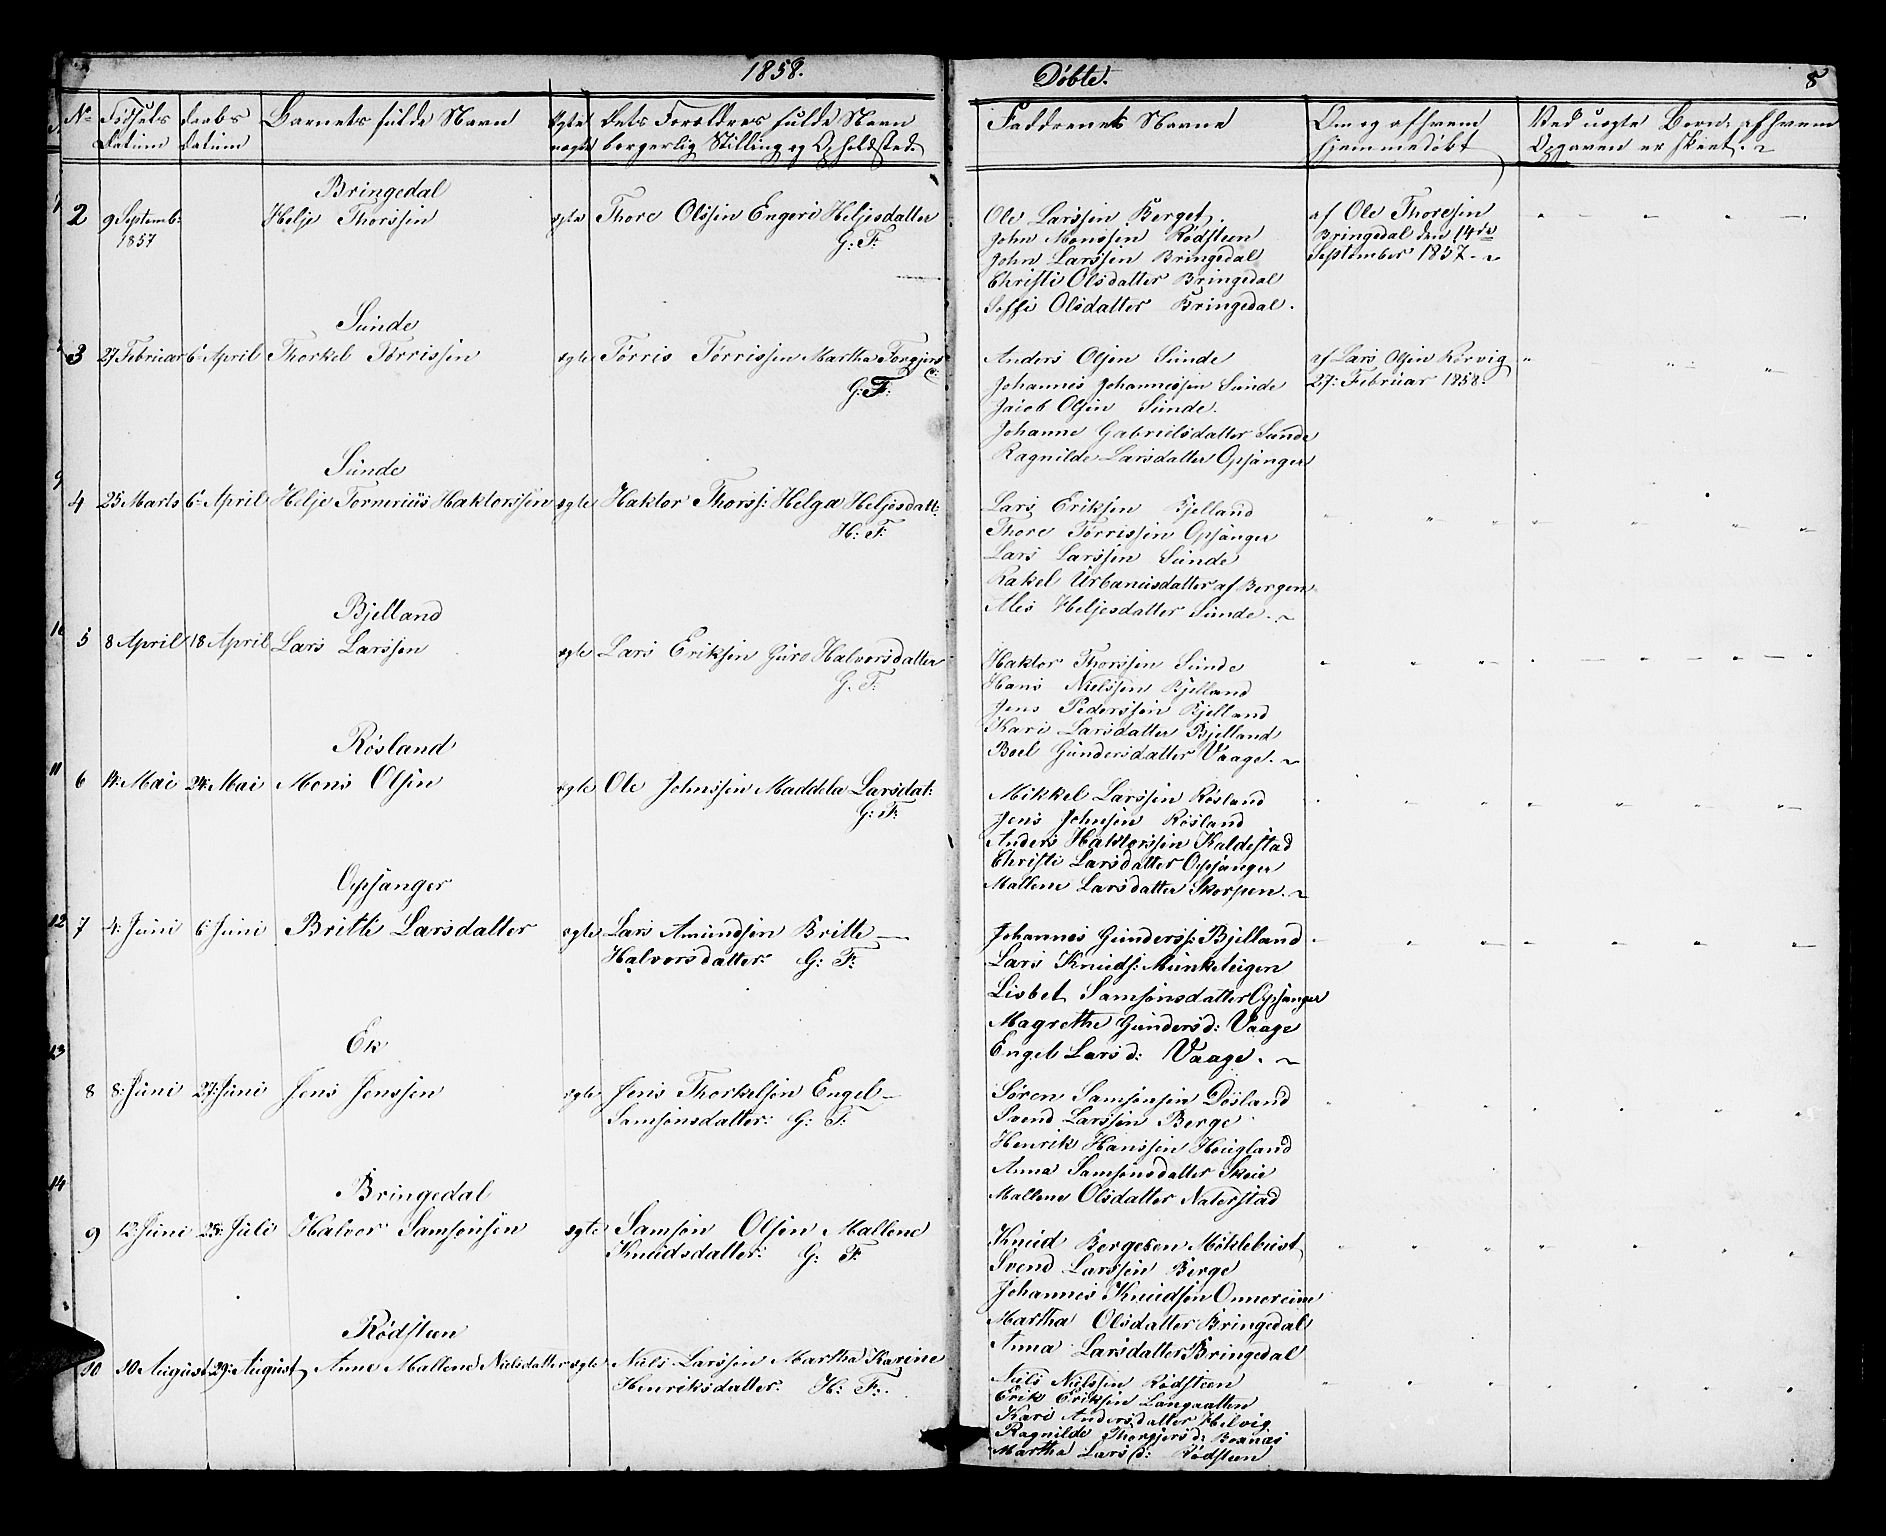 1858.
Døbte.
8
No Fødsels Daabs Barnets fulde Navn Ægte Dets Forældres fulde Navn
Datum Datum uægte borgerlig Stilling og Opholdsted
Faddrenes Navne Om og af hvem Ved uægte Børn, af hvem
hjemmedøbt Opgaven er skeet.
Bringedal
2 9 Septemb: Helje Thorssen ægte Thore Olssen Engeri Heljesdatter
1857 G: F:
Ole Larssen Berget. af Ole Thoresen
John Monssen Rødsteen Bringedal den 14de
John Larssen Bringedal September 1857.
Christi Olsdatter Bringedal
Seffi Olsdatter Bringedal.
Sunde
3 27 Februar 6 April Thorkel Tørrissen ægte Tørris Tørrissen Martha Torgjers
G: F:
Anders Olsen Sunde af Lars Olsen Rørvig
Johannes Johannessen Sunde 27: Februar 1858.
Jacob Olsen Sunde.
Johanne Gabrielsdatter Sunde
Ragnilde Larsdatter Opsanger
Sunde
4 25 Marts 6 April Helje Tornerius Haktorssen ægte Haktor Thorss: Helga Heljesdatt:
H: F:
Lars Eriksen Bjelland
Thore Tørrissen Opsanger
Lars Larssen Sunde
Rakel Urbanusdatter af Bergen
Ales Heljesdatter Sunde.
Bjelland
5 8 April 18 April Lars Larssen ægte Lars Eriksen Guro Halvorsdatter
G. F:
Haktor Thorssen Sunde
Hans Nielssen Bjelland
Jens Pederssen Bjelland
Kari Larsdatter Bjelland
Boel Gundersdatter Vaage.
Røsland
6 14: Mai 24: Mai Mons Olsen ægte Ole Johnssen Maddela Larsdat:
G: F:
Mikkel Larssen Røsland
Jens Johnsen Røsland
Anders Haktorssen Kaldestad
Christi Larsdatter Opsanger
Mallene Larsdatter Skorpen.
Opsanger
7 4: Juni 6 Juni Britte Larsdatter ægte Lars Amundsen Britte
Halvorsdatter: G: F:
Johannes Gunderss: Bjelland
Lars Knuds: Munkeleigen
Lisbet Samsonsdatter Opsanger
Magrethe Gundersd: Vaage
Engel Larsd: Vaage.
Ek
8 8: Juni 27: Juni Jens Jenssen ægte Jens Thorkelsen Engel
Samsonsdatter: G: F:
Søren Samsonsen Døsland
Svend Larssen Berge
Henrik Hanssen Hougland
Anna Samsonsdatter Skeie
Mallene Olsdatter Naterstad
Bringedal
9 12: Juni 25: Juli Halvor Samsonsen ægte Samson Olsen Mallene
Knudsdatter: G: F:
Knud Borgesen Møklebust
Svend Larssen Berge
Johannes Knudsen Onnereim
Martha Olsdatter Bringedal
Anna Larsdatter Bringedal
Rødsteen
10 10 August 29: August Anne Mallene Nielsdatter ægte Niels Larssen Martha Karine
Henriksdatter: H: F:.
Niels Nielssen Rødsteen
Erik Eriksen Langaatten
Kari Andersdatter Helvig
Ragnilde Thorgjersd:
Martha Larsd: Rødsteen
9
10
11
12
13
14